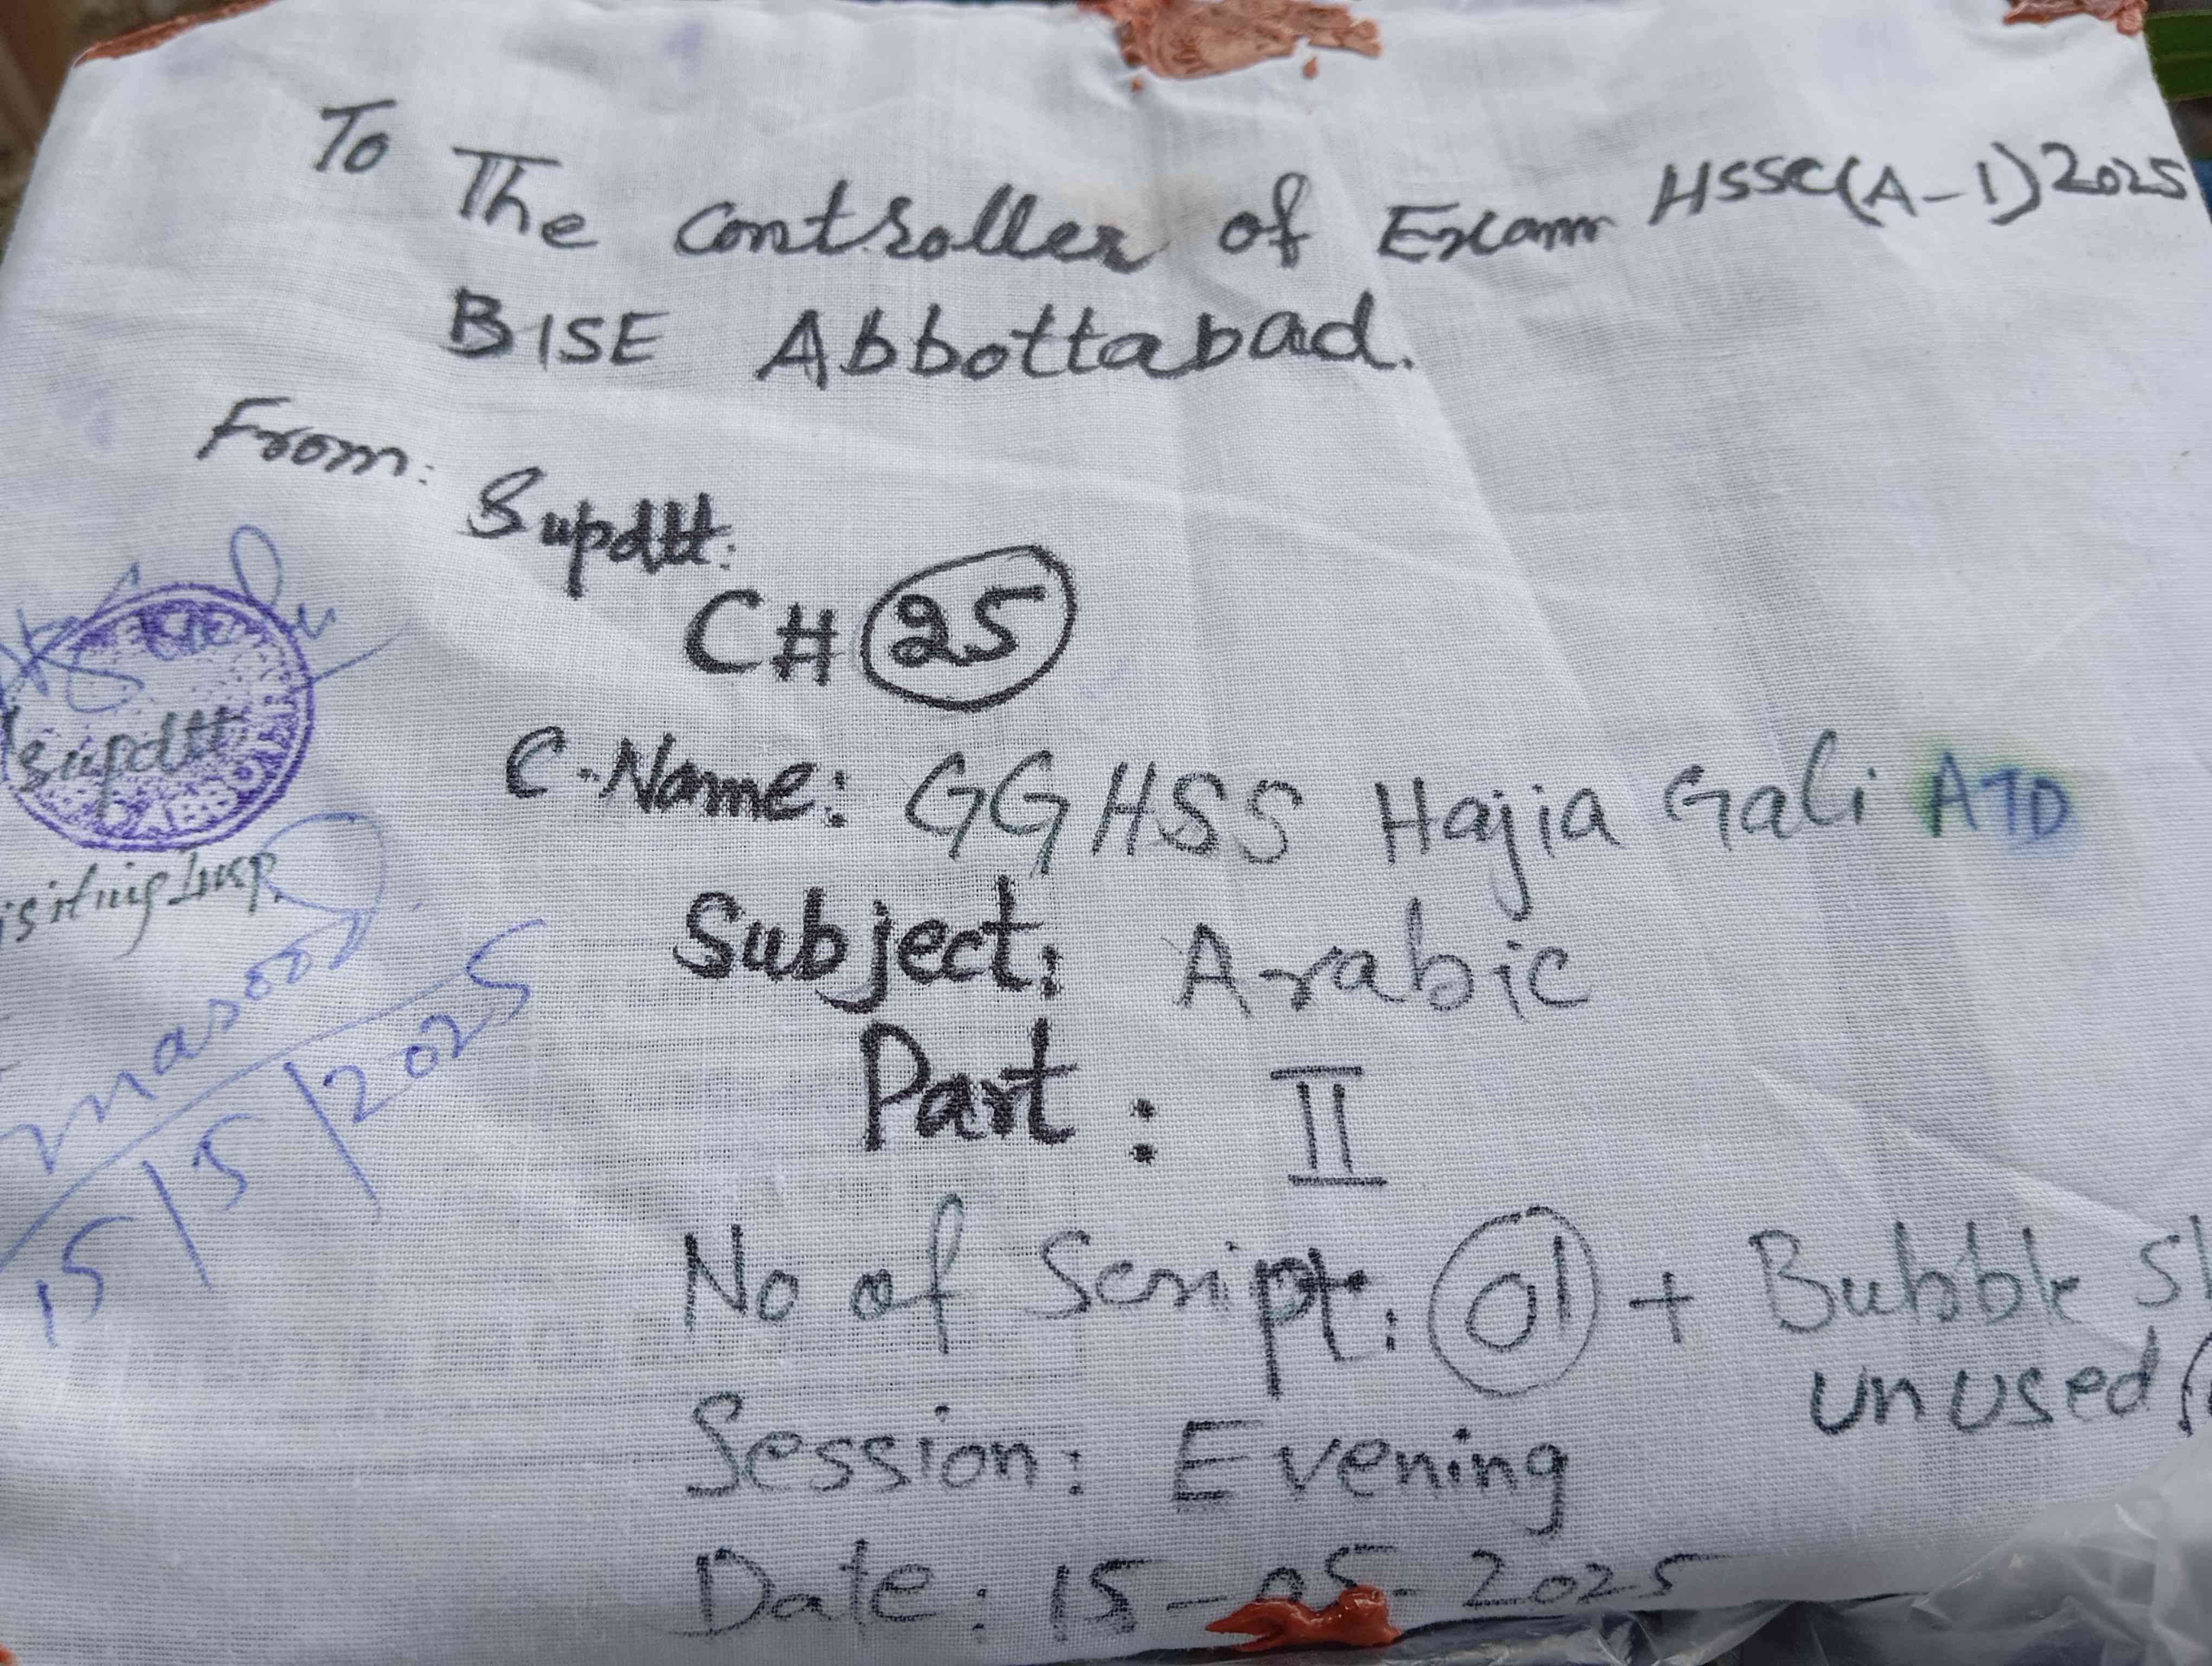 To
The Controller of Exam HSSC(A-1)2025
BISE Abbottabad.
From:
Supdtt:
C# 25
C.Name: GGHSS Hajia Gali ATD
Subject: Arabic
Part: II
No of Script: 01 + Bubble
unused
Session: Evening
Date: 15-05-2025
Supdtt
Insp.
masood
15/5/2025